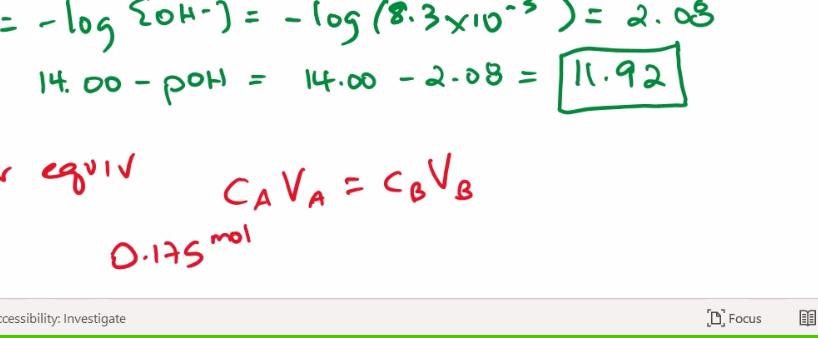 = -log [OH-] = -log (8.3x10⁻³) = 2.08
14.00 - pOH = 14.00 - 2.08 = 11.92
r equiv CAVA = CBVB
0.175 mol
ccessibility: Investigate Focus